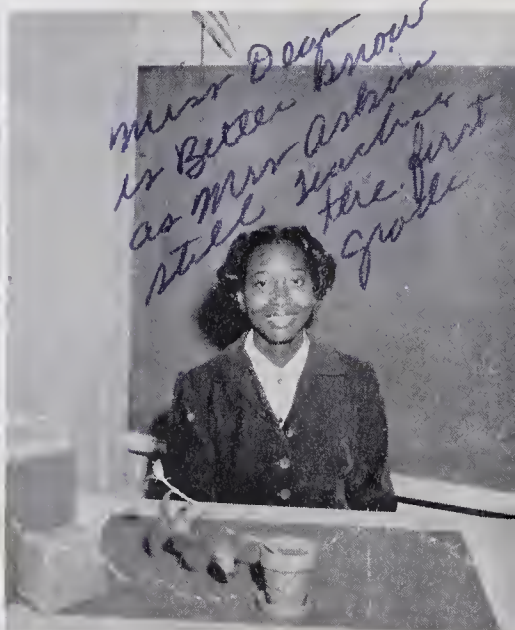 Miss Dean
is Better know
as Mrs
still teaching
the first
grade